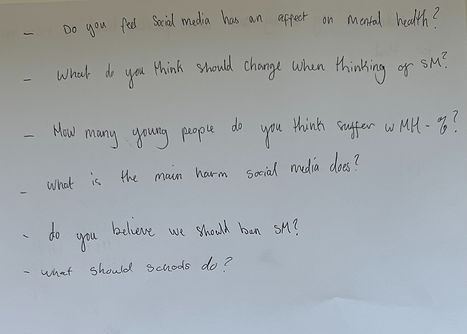 - Do you feel Social media has an affect on Mental health?
- What do you think should change when thinking of SM?
- How many young people do you think suffer w MH - %?
- What is the main harm social media does?
- do you believe we should ban SM?
- what should schools do?